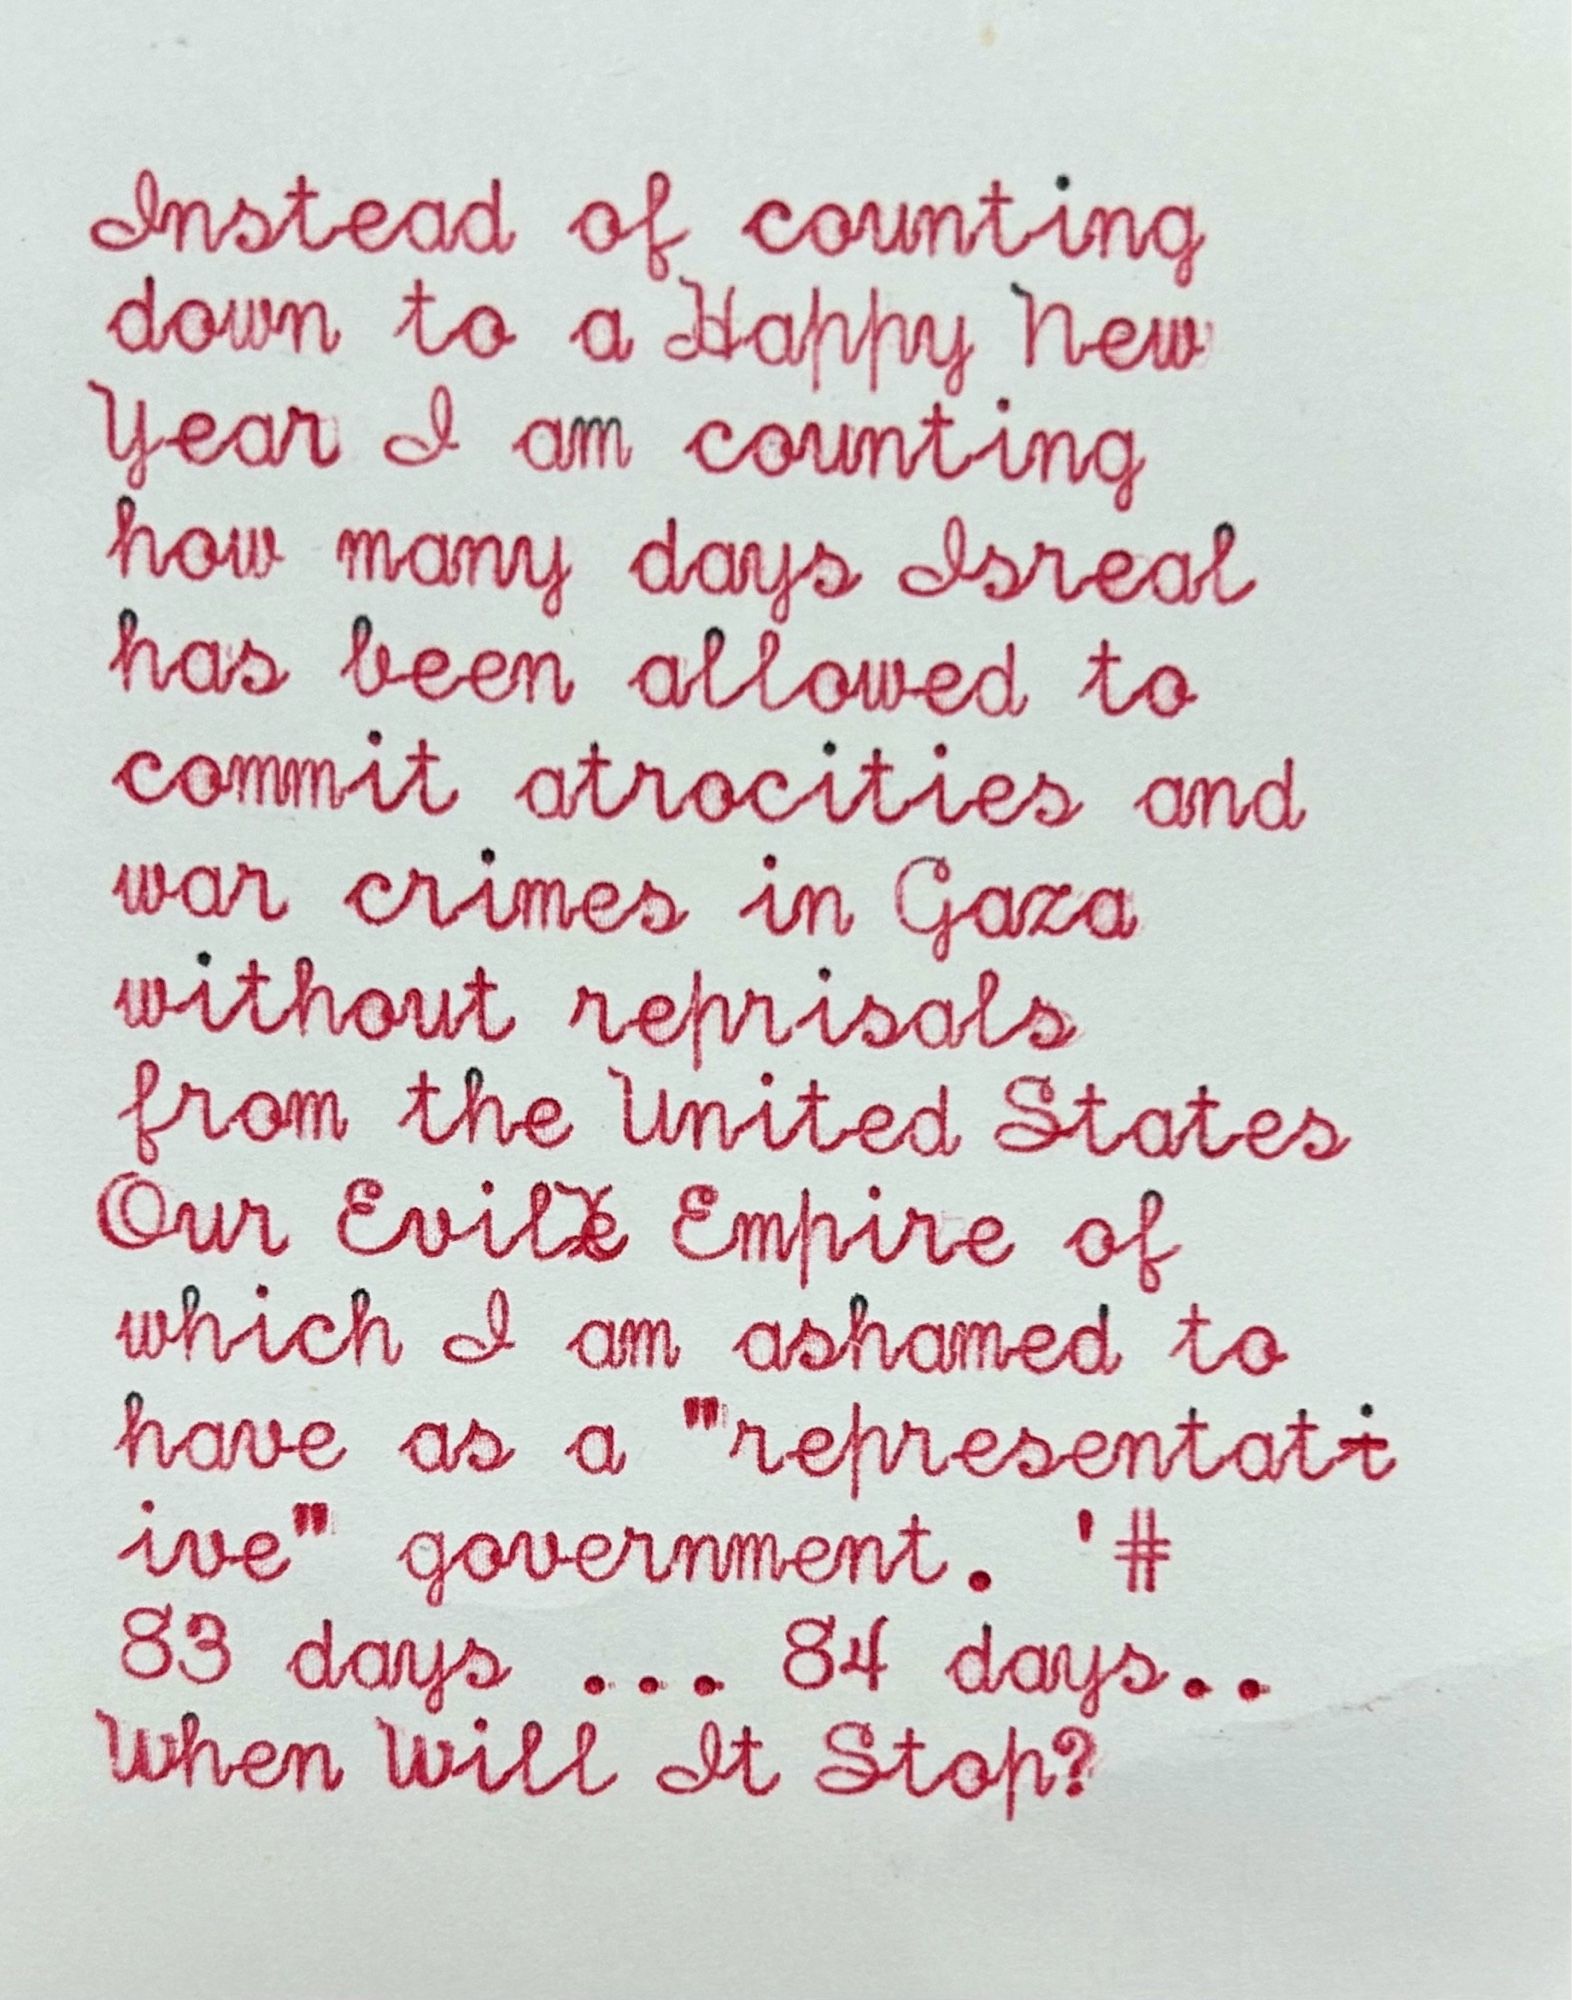 Instead of counting
down to a Happy New
Year I am counting
how many days Isreal
has been allowed to
commit atrocities and
war crimes in Gaza
without reprisals
from the United States
Our Evil Empire of
which I am ashamed to
have as a "representati
ive" government. '#
83 days ... 84 days..
When Will It Stop?